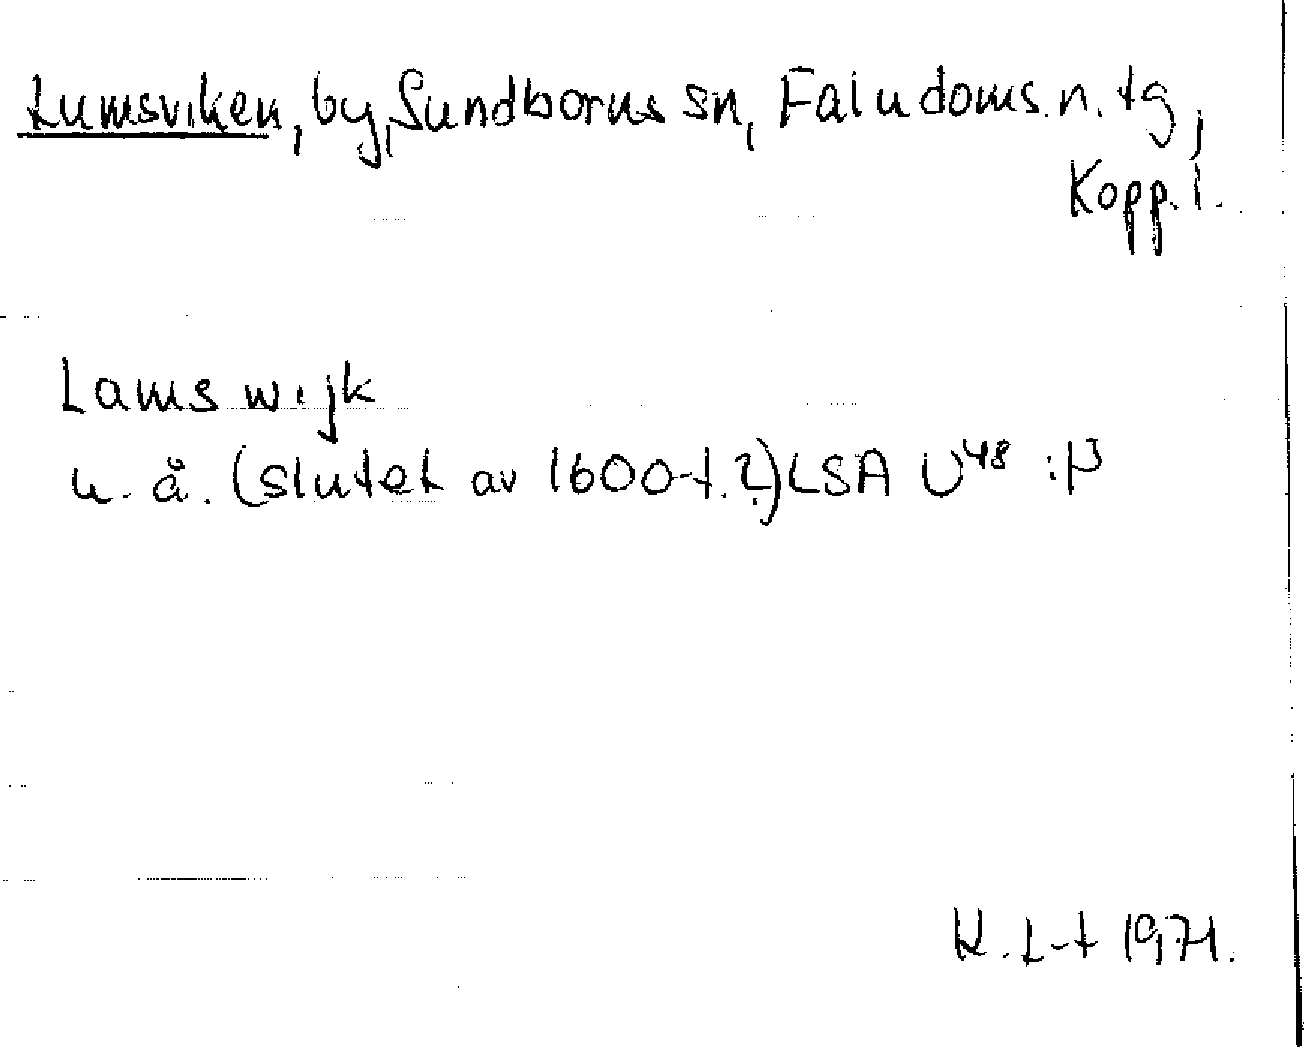 Lumsviken, by, Sundborns sn, Falu doms. n. tg,
Kopp. l.
Lams wijk
u. å. (slutet av 1600-t.?) LSA U48 :
K. L-t 1971.